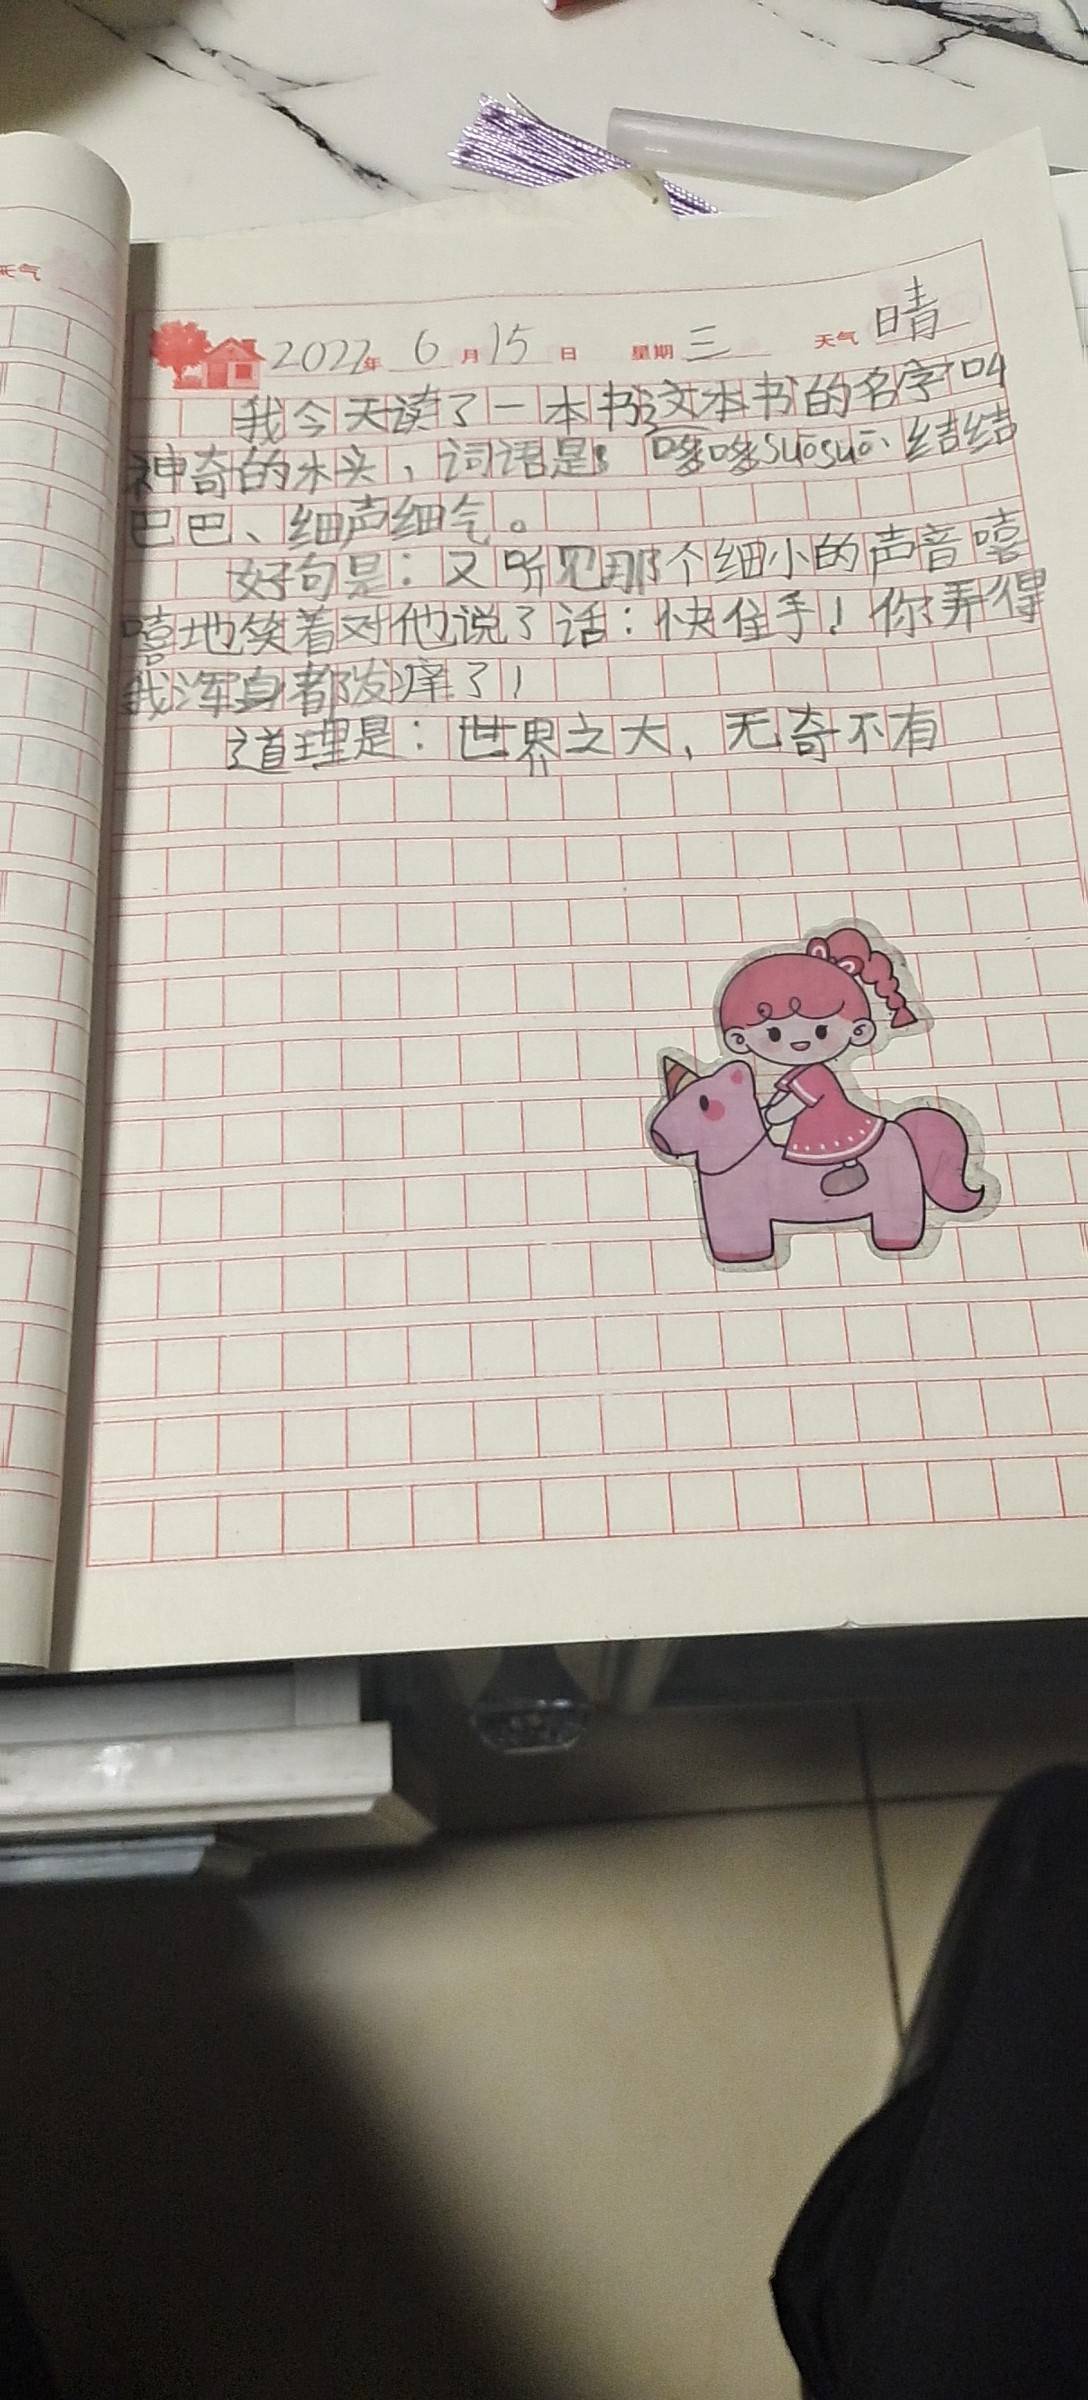 天气
2022年 6月15日 星期三 天气 晴
我今天读了一本书这本书的名字叫
神奇的木头，词语是：哆哆suōsuō、结结
巴巴、细声细气。
好句是：又听见那个细小的声音嘻
嘻地笑着对他说了话：快住手！你弄得
我浑身都发痒了！
道理是：世界之大，无奇不有